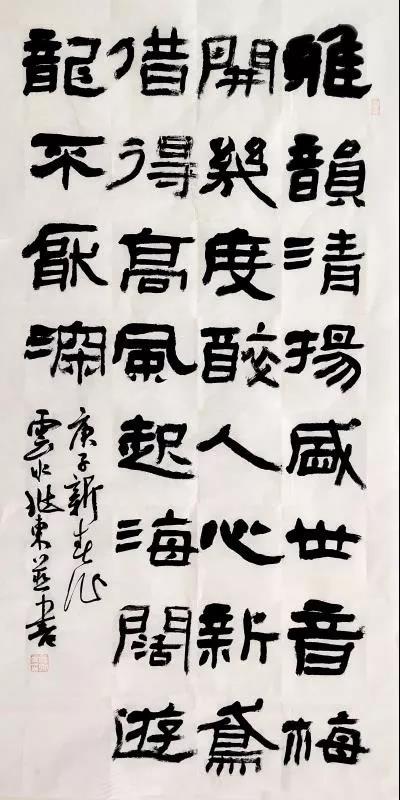 雅韻清揚盛世音梅
開幾度醉人心新鳶
借得高風起海闊遊
龍不厭深
庚子新春作
雲水继東并書